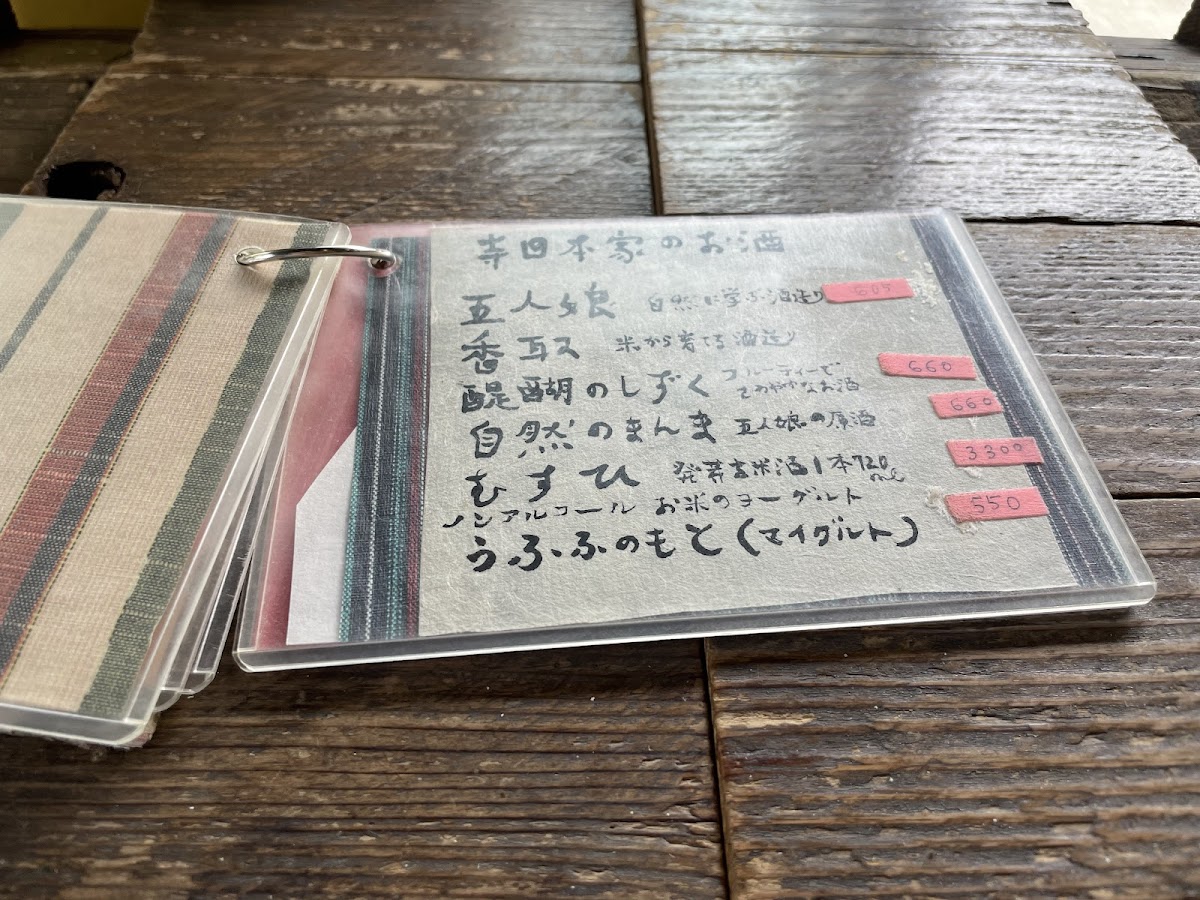 寺田本家のお酒
五人娘 自然に学ぶ酒造り 605
香取 米から育てる酒造り
醍醐のしずく フルーティーで 660
さわやかなお酒
自然のまんま 五人娘の原酒 660
むすひ 発芽玄米酒1本720ml 3300
ノンアルコール お米のヨーグルト
うふふのもと(マイグルト) 550